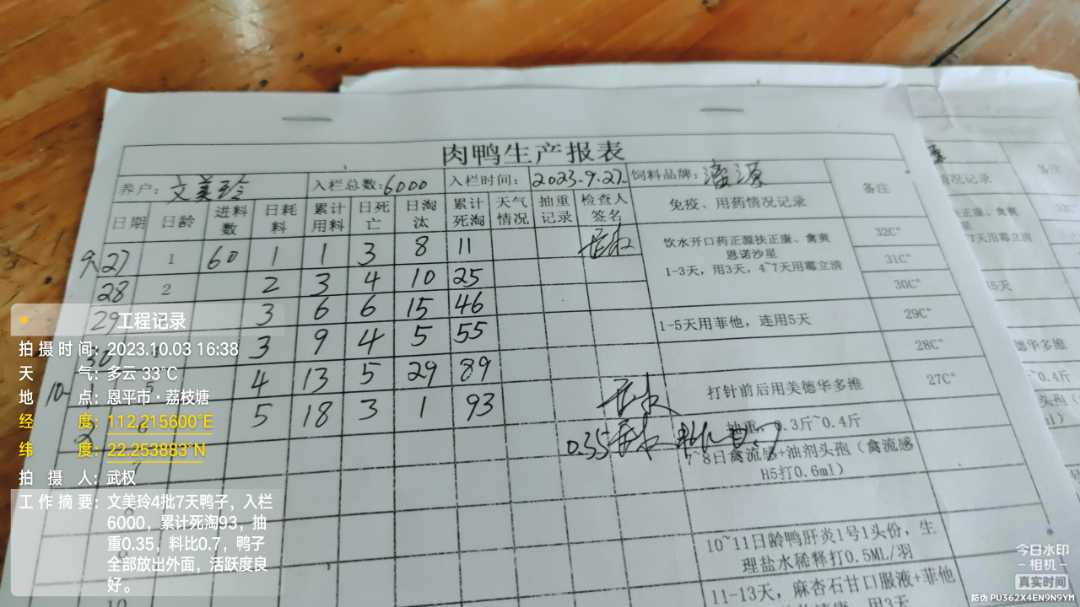 肉鸭生产报表
养户: 文美玲 入栏总数:6000 入栏时间: 2023.9.27. 饲料品牌: 源 备注
日期 日龄 进料数 日耗料 累计用料 日死亡 日淘汰 累计死淘 天气情况 抽重记录 检查人签名 免疫、用药情况记录
9.27 1 60 1 1 3 8 11 饮水开口药正源扶正康、禽爽 32C°
恩诺沙星
28 2 2 3 4 10 25 1-3天,用3天,4~7天用霉立清 31C°
30C°
29 3 6 6 15 46 29C°
30 3 9 4 5 55 1-5天用菲他,连用5天 28C°
10 4 13 5 29 89 打针前后用美德华多维 27C°
2 5 18 3 1 93 抽重:0.3斤~0.4斤
0.35
7~8日禽流感+油剂头孢(禽流感
H5打0.6ml)
7
8
10~11日龄鸭肝炎1号1头份,生
理盐水稀释打0.5ML/羽
11-13天,麻杏石甘口服液+菲他
用3天
10
备注
工程记录
拍摄时间:2023.10.03 16:38
天气:多云 33℃
地点:恩平市·荔枝塘
经度:112.215600°E
纬度:22.253883°N
拍摄人:武权
工作摘要:文美玲4批7天鸭子,入栏
6000,累计死淘93,抽
重0.35,料比0.7,鸭子
全部放出外面,活跃度良
好。
今日水印
-相机-
真实时间
防伪 PU362X4EN9N9YM